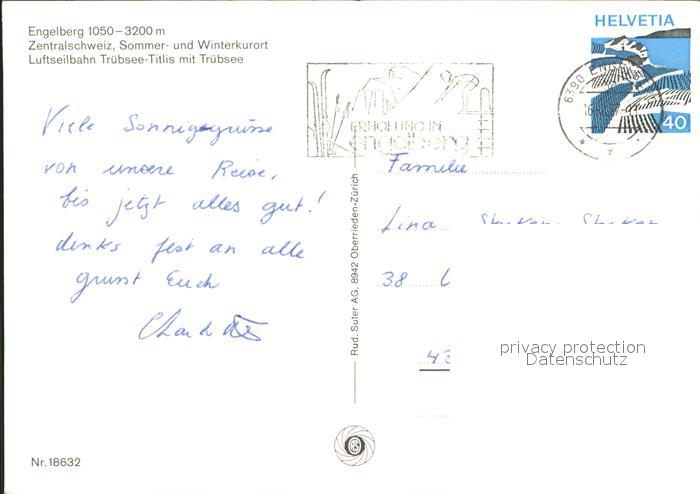 Engelberg 1050–3200 m
Zentralschweiz, Sommer- und Winterkurort
Luftseilbahn Trübsee-Titlis mit Trübsee
HELVETIA
40
6390 ENGELBERG
ERHOLUNG IN
engelberg
Viele Sonnigegrüsse
von unsere Reise,
bis jetzt alles gut!
denks fest an alle
grusst Euch
Familie
Lina
38
43
privacy protection
Datenschutz
Rud. Suter AG, 8942 Oberrieden-Zürich
Nr. 18632